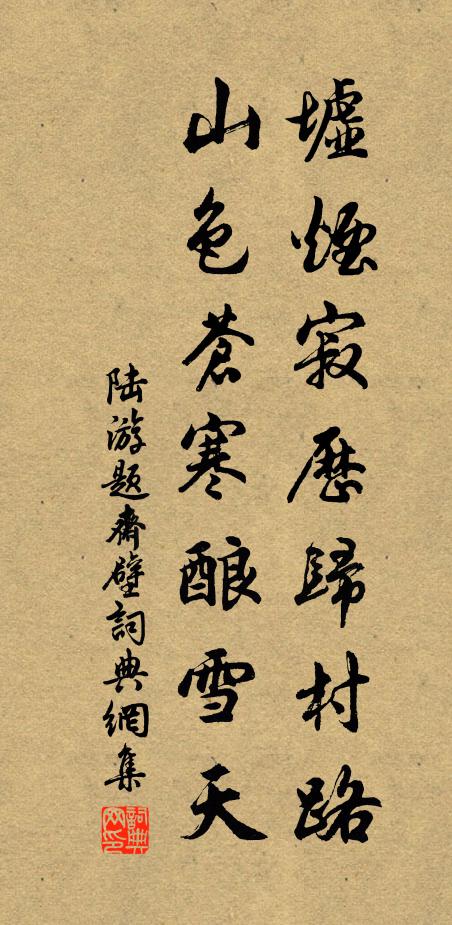 墟煙寂歷歸村路
山色蒼寒酿雪天
陆游题齋壁詞典網集
詞典网印